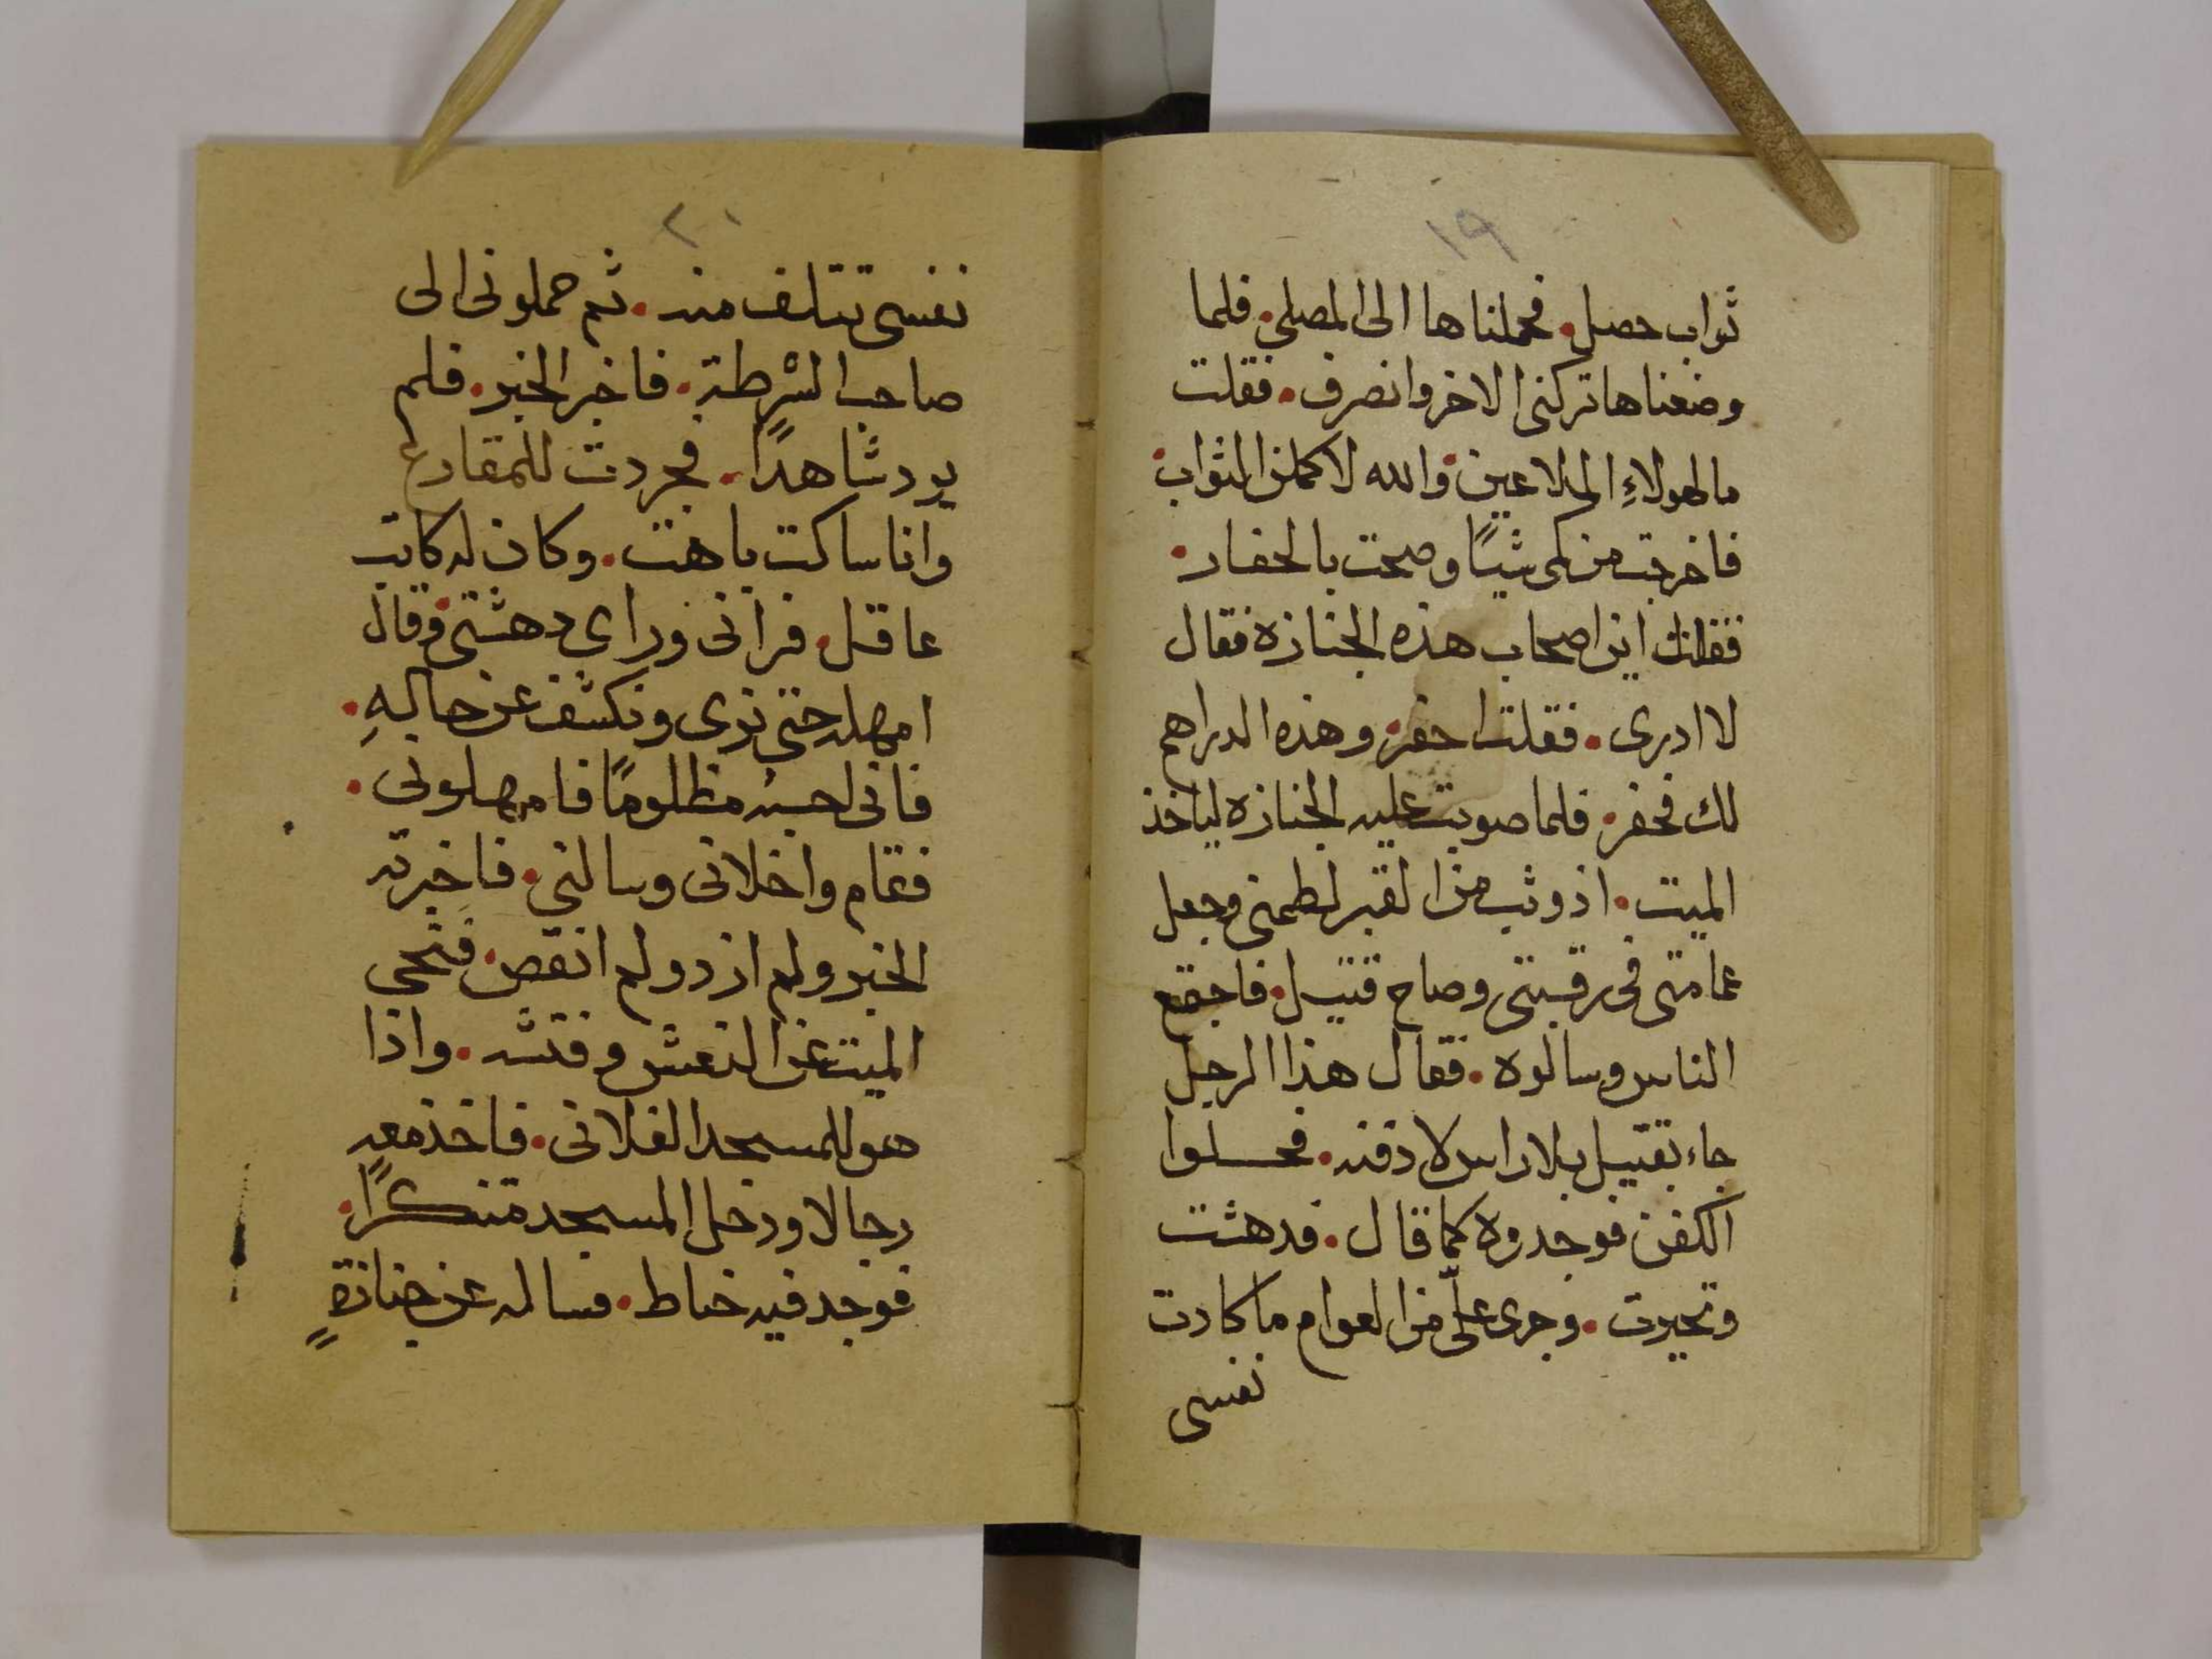 ١٩
ثواب حصل. فحملناها الى المصلى. فلما
وضعناها تركنى الاخر وانصرف. فقلت
ما لهولاءِ الملاعين. والله لاكملن الثواب.
فاخرجت من كمى شيًا وصحت بالحفار.
فقلت اين اصحاب هذه الجنازة فقال
لا ادرى. فقلت احفر. وهذه الدراهم
لك فحفر. فلما صوبت عليه الجنازه لياخذ
الميت. اذ وثب من القبر لطمنى وجعل
عمامتى فى رقبتى وصاح قتيل. فاجتمع
الناس وسالوه. فقال هذا الرجل
جاء بقتيل بلا راس لادفنه. فحلوا
الكفن فوجدوه كما قال. فدهشت
وتحيرت. وجرى علىّ من العوام ما كادت
نفسى
٢١
نفسى تتلف منه. ثم حملونى الى
صاحب الشرطة. فاخبر الخبر. فلم
يرد شاهدًا. فجردت للمقارع
وانا ساكت باهت. وكان له كاتب
عاقل. فرانى وراى دهشتى. وقال
امهله حتى نرى ونكشف عن حالهِ.
فانى احسبه مظلومًا فامهلونى.
فقام واخلانى وسالنى. فاخبرته
الخبر ولم ازد ولم انقص. فنحى
الميت عن النعش وفتشه. واذا
هو للمسجد الفلانى. فاخذ معه
رجالا ودخل المسجد متنكرًا.
فوجد فيه خياط. فساله عن جنازةٍ